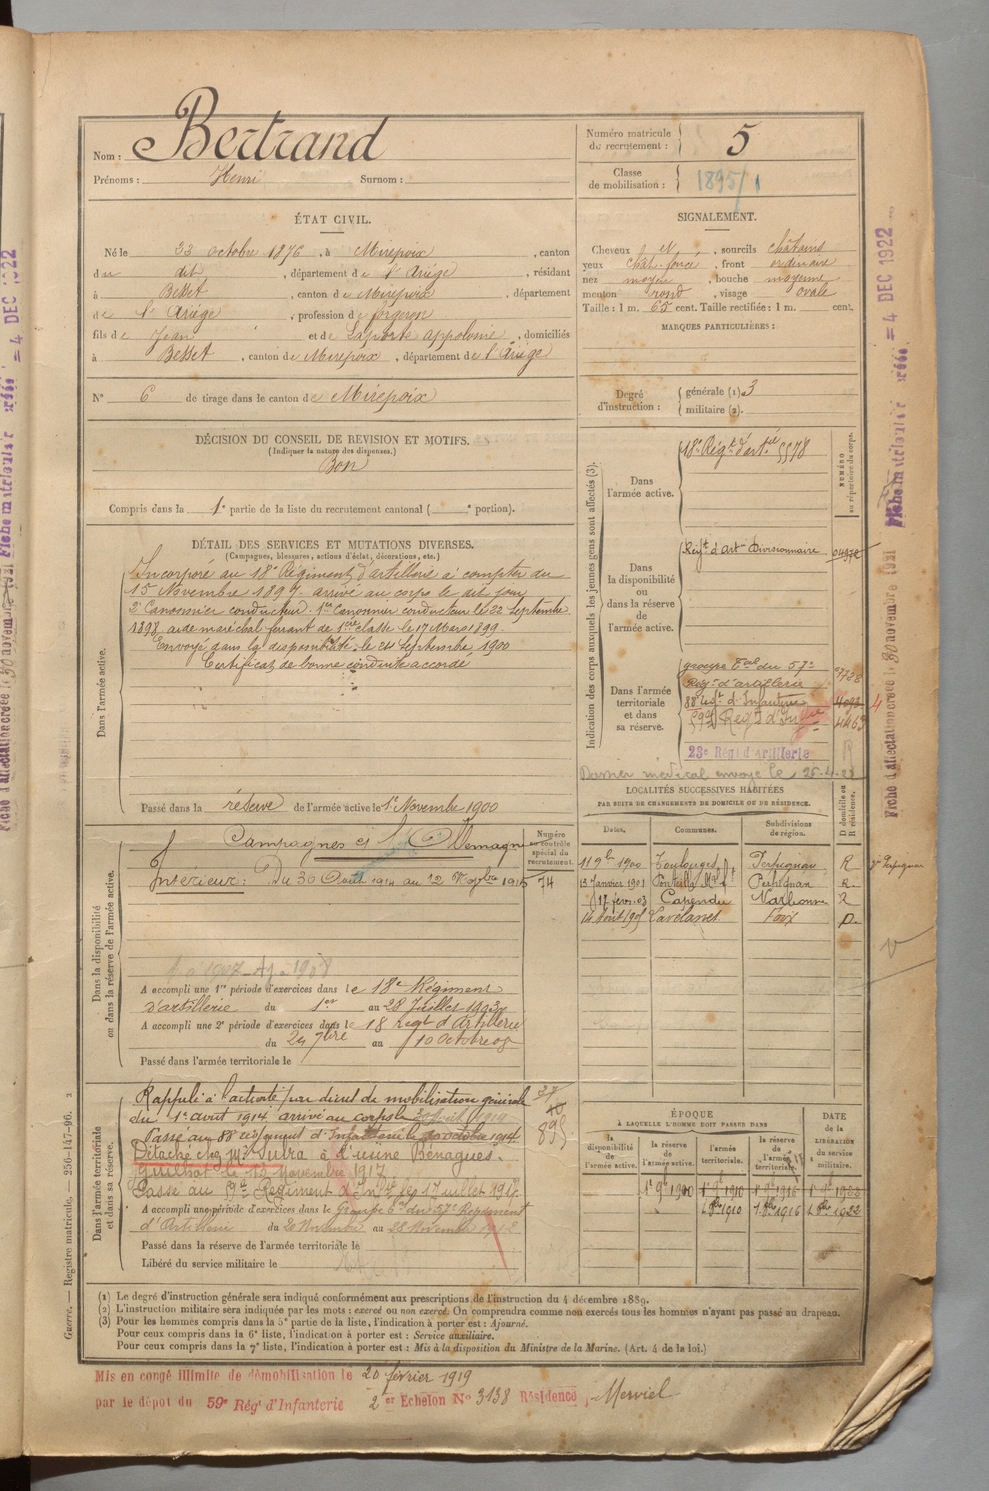 Nom : Bertrand
Prénoms : Henri Surnom :
Numéro matricule du recrutement : 5
Classe de mobilisation : 1895/1
ÉTAT CIVIL.
Né le 23 octobre 1876, à Mirepoix, canton
du dit, département de l'Ariège, résidant
à Besset, canton de Mirepoix, département
de l'Ariège, profession de forgeron
fils de Jean et de Laporte Appolonie, domiciliés
à Besset, canton de Mirepoix, département de l'Ariège
N° 6 de tirage dans le canton de Mirepoix
SIGNALEMENT.
Cheveux N, sourcils châtains
yeux chat. foncé, front ordinaire
nez moyen, bouche moyenne
menton rond, visage ovale
Taille : 1 m. 65 cent. Taille rectifiée : 1 m. cent.
MARQUES PARTICULIÈRES :
Degré d'instruction : générale (1) 3
militaire (2).
DÉCISION DU CONSEIL DE REVISION ET MOTIFS.
(Indiquer la nature des dispenses.)
Bon
Compris dans la 1e partie de la liste du recrutement cantonal ( e portion).
DÉTAIL DES SERVICES ET MUTATIONS DIVERSES.
(Campagnes, blessures, actions d'éclat, décorations, etc.)
Dans l'armée active.
Incorporé au 18e Régiment d'artillerie à compter du
15 Novembre 1897. arrivé au corps le dit jour
2e Canonnier conducteur. 1er Canonnier conducteur le 22 Septembre
1898 aide maréchal ferrant de 1ère classe le 17 Mars 1899.
Envoyé dans la disponibilité le 24 Septembre 1900
Certificat de bonne conduite accordé
Passé dans la réserve de l'armée active le 1er Novembre 1900
Indication des corps auxquels les jeunes gens sont affectés (3).
NUMÉRO au répertoire du corps.
Dans l'armée active.
18e Régt d'artie 5578
Dans la disponibilité ou dans la réserve de l'armée active.
Régt d'art Divisionnaire
Dans l'armée territoriale et dans sa réserve.
groupe Tal du 57e
Régt d'artillerie
88 Régt d'Infanterie
59e Régt d'Infie
23e Régt d'Artillerie
Dossier médical envoyé le
LOCALITÉS SUCCESSIVES HABITÉES
PAR SUITE DE CHANGEMENTS DE DOMICILE OU DE RÉSIDENCE.
Dates. Communes. Subdivisions de région. D domicile ou R résidence.
11 9bre 1900 Toulouges Perpignan R
13 Janvier 1901 Perpignan R
17 févr. 03 Capendu Narbonne R
14 Août 1905 Lavelanet Foix D
Dans la disponibilité ou dans la réserve de l'armée active.
Numéro au contrôle spécial du recrutement.
Campagnes cs l'Allemagne
Intérieur : Du 30 Août 1914 au 12 1915 74
A accompli une 1re période d'exercices dans le 18e Régiment
d'artillerie du 1er au 28 Juillet 1903
A accompli une 2e période d'exercices dans le 18 régt d'Artillerie
du 24 7bre au 10 Octobre 06
Passé dans l'armée territoriale le
Dans l'armée territoriale et dans sa réserve.
Rappelé à l'activité par décret de mobilisation générale
du 1er août 1914 arrivé au corps le
Passé au 88 régiment d'Infanterie le octobre 1914
895
Détaché chez Mr Subra à l'usine Bénagues.
Guilhot le 13 Novembre 1917
Passé au 9e Régiment d'Infie le 17 juillet 1917
A accompli une période d'exercices dans le Groupe Tal du 57e Régiment
d'Artillerie du 20 Novembre au 28 Novembre 1912
Passé dans la réserve de l'armée territoriale le
Libéré du service militaire le
ÉPOQUE
À LAQUELLE L'HOMME DOIT PASSER DANS
DATE de la LIBÉRATION du service militaire.
la disponibilité de l'armée active. la réserve de l'armée active. l'armée territoriale. la réserve de l'armée territoriale.
1er 9bre 1900 1er 9bre 1910 1er 9bre 1916
1 8bre 1910 1 8bre 1916 1 8bre 1922
(1) Le degré d'instruction générale sera indiqué conformément aux prescriptions de l'instruction du 4 décembre 1889.
(2) L'instruction militaire sera indiquée par les mots : exercé ou non exercé. On comprendra comme non exercés tous les hommes n'ayant pas passé au drapeau.
(3) Pour les hommes compris dans la 5e partie de la liste, l'indication à porter est : Ajourné.
Pour ceux compris dans la 6e liste, l'indication à porter est : Service auxiliaire.
Pour ceux compris dans la 7e liste, l'indication à porter est : Mis à la disposition du Ministre de la Marine. (Art. 4 de la loi.)
Mis en congé illimité de démobilisation le 20 février 1919
par le dépôt du 59e Régt d'Infanterie 2 er Echelon No 3138 Résidence, Merviel
Guerre. — Registre matricule. — 256-147-96.
Fiche d'affectation créée le 30 novembre 1921
Fiche matriculaire créée = 4 DEC 1922